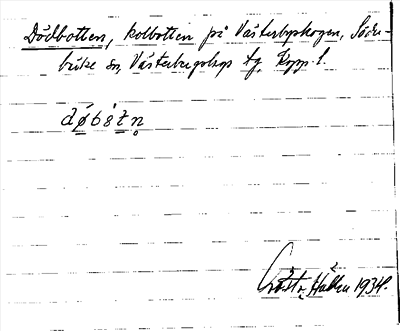 Dödbotten, kolbotten på Västerbyskogen, Söder-
bärke sn, Västerbergslags tg, Kopp. l.
dǿbȯt̠n̥
Götta Hällen 1934.